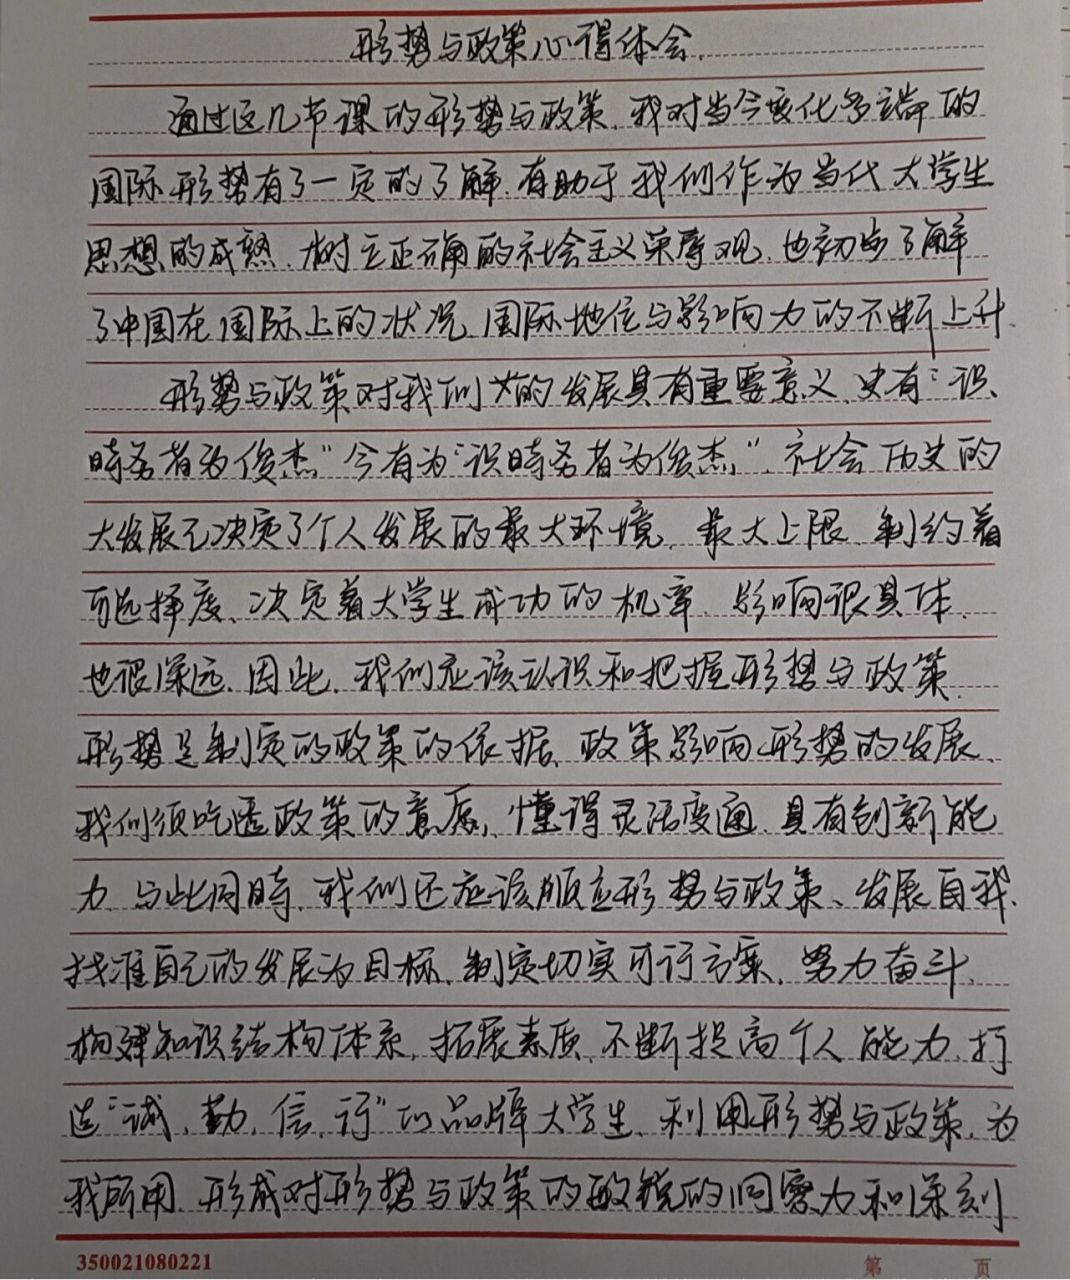 形势与政策心得体会.
通过这几节课的形势与政策,我对当今变化多端的
国际形势有了一定的了解,有助于我们作为当代大学生
思想的成熟、树立正确的社会主义荣辱观、也初步了解
了中国在国际上的状况、国际地位与影响力的不断上升.
形势与政策对我们的发展具有重要意义、史有:“识
時务者为俊杰”今有为“识時务者为俊杰,”、社会历史的
大发展已决定了个人发展的最大环境、最大上限、制约着
可选择度、决定着大学生成功的机率、影响很具体、
也很深远、因此、我们应该认识和把握形势与政策、
形势是制定的政策的依据、政策影响形势的发展、
我们须吃透政策的意后,懂得灵活变通、具有创新能
力、与此同時、我们还应该顺应形势与政策、发展自我、
找准自己的发展为目标、制定切实可行方案、努力奋斗、
构建知识结构体系、拓展素质、不断提高个人能力、打
造“诚、勤、信、行”的品牌大学生、利用形势与政策、为
我所用、形成对形势与政策的敏锐的洞察力和深刻
350021080221
第 页